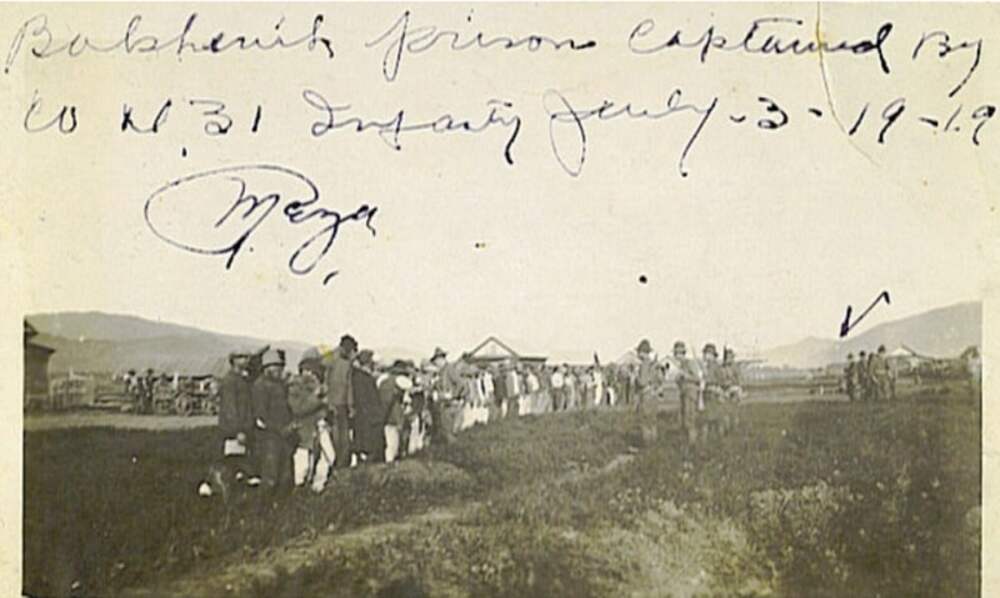 Bolshevik prison Captained By
Co M 31 Infanty July-3-19-19
Meza